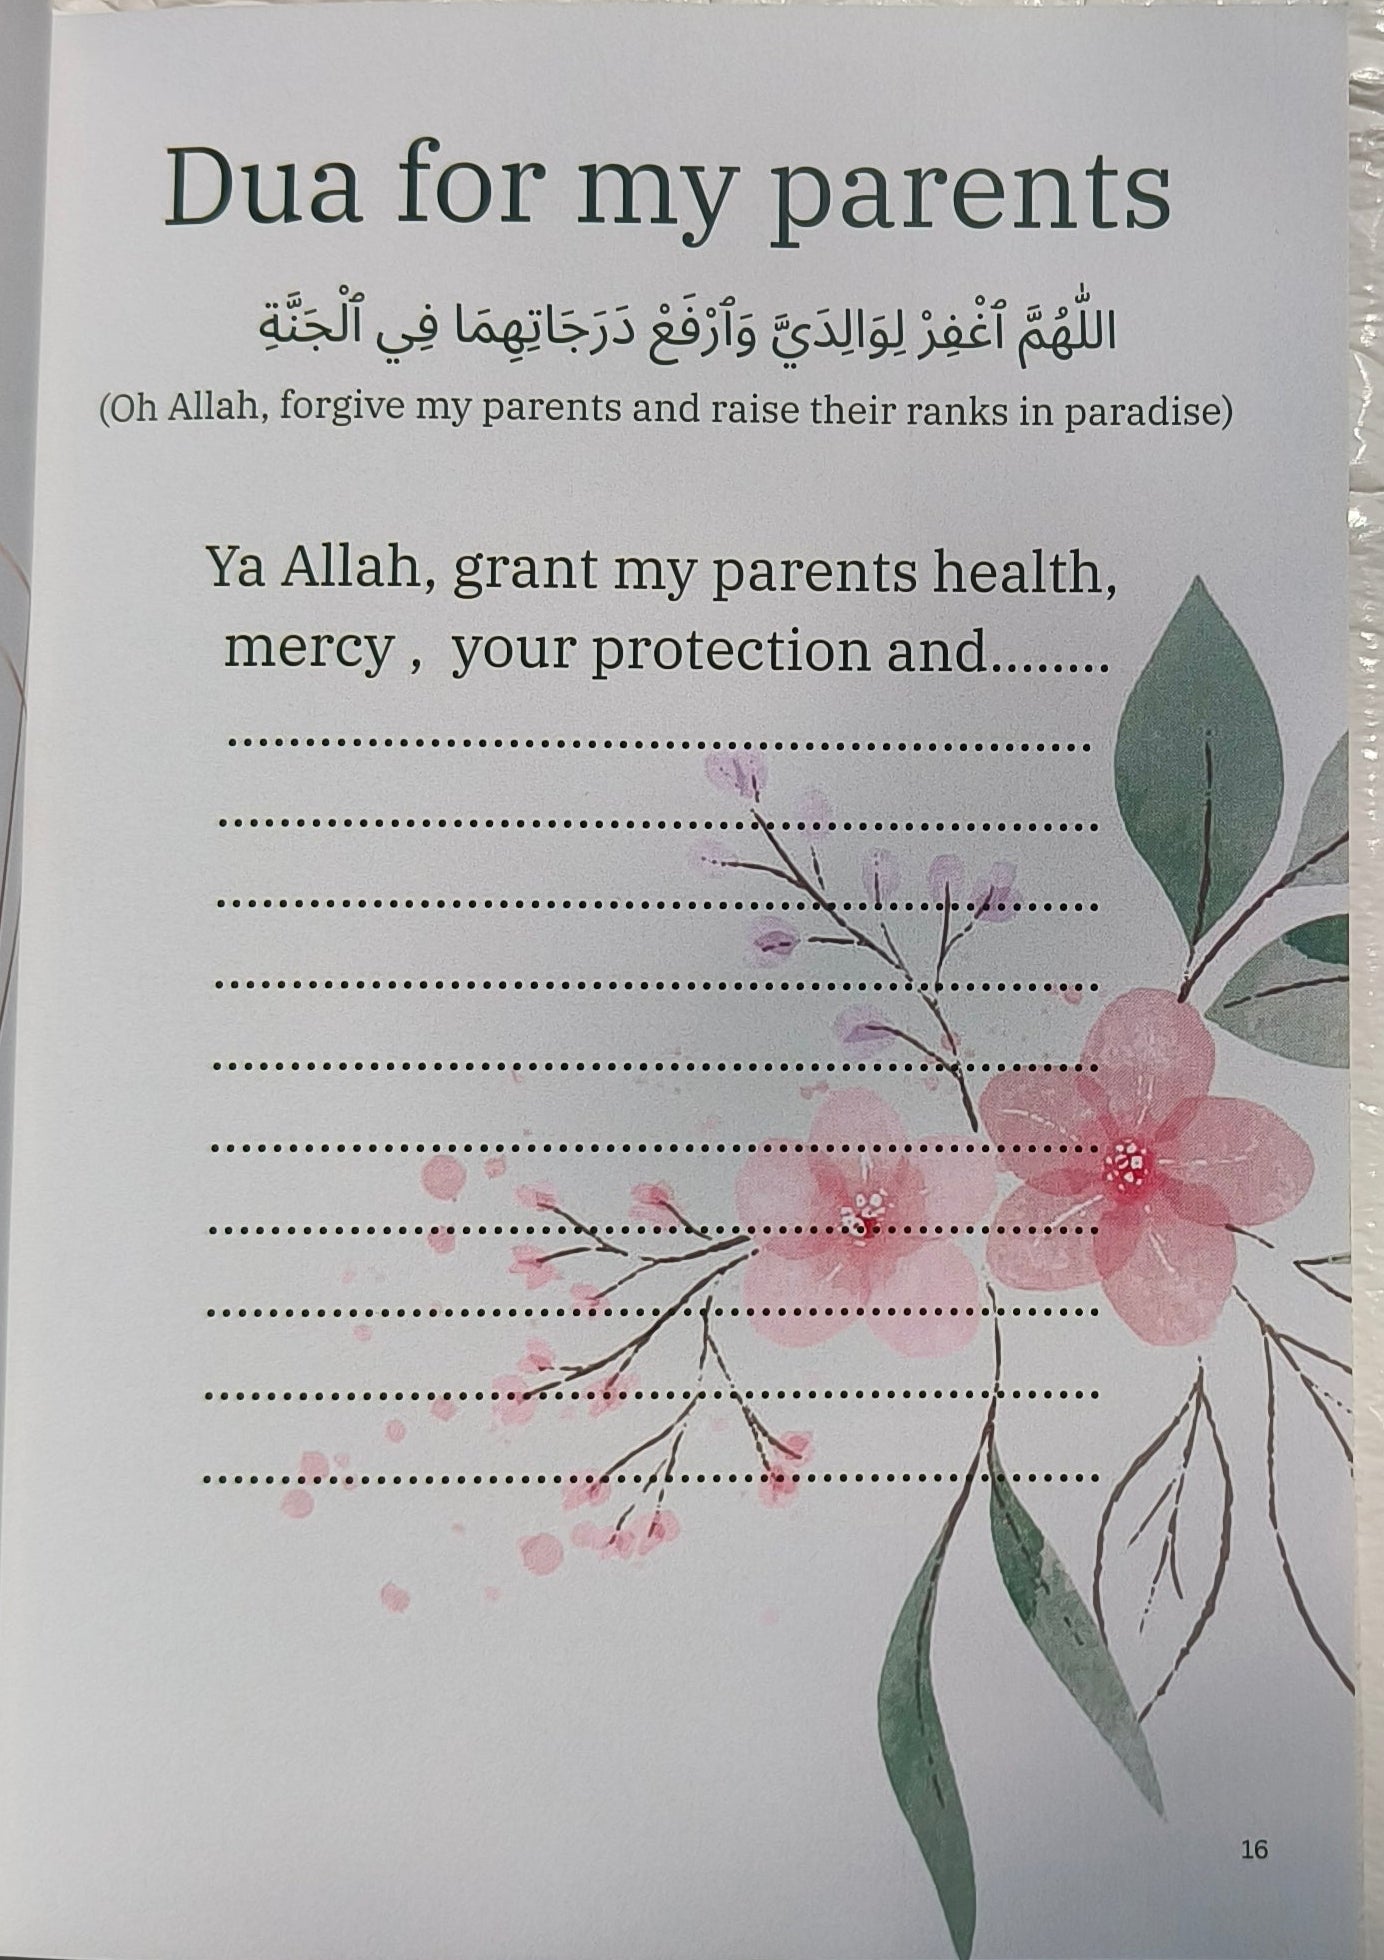 Dua for my parents
اللّٰهُمَّ ٱغْفِرْ لِوَالِدَيَّ وَٱرْفَعْ دَرَجَاتِهِمَا فِي ٱلْجَنَّةِ
(Oh Allah, forgive my parents and raise their ranks in paradise)
Ya Allah, grant my parents health,
mercy ,  your protection and........
16